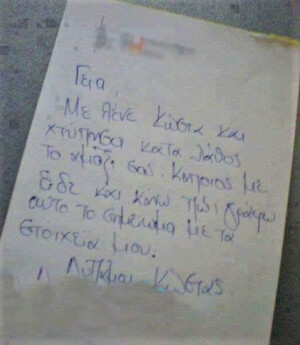 Γεια,
Με λένε Κώστα και
χτύπησα κατα λάθος
το αμάξι σας. Κάποιος με
είδε και κάνω πως γράφω
αυτο το σημείωμα με τα
στοιχεία μου.
Λυπάμαι Κώστας